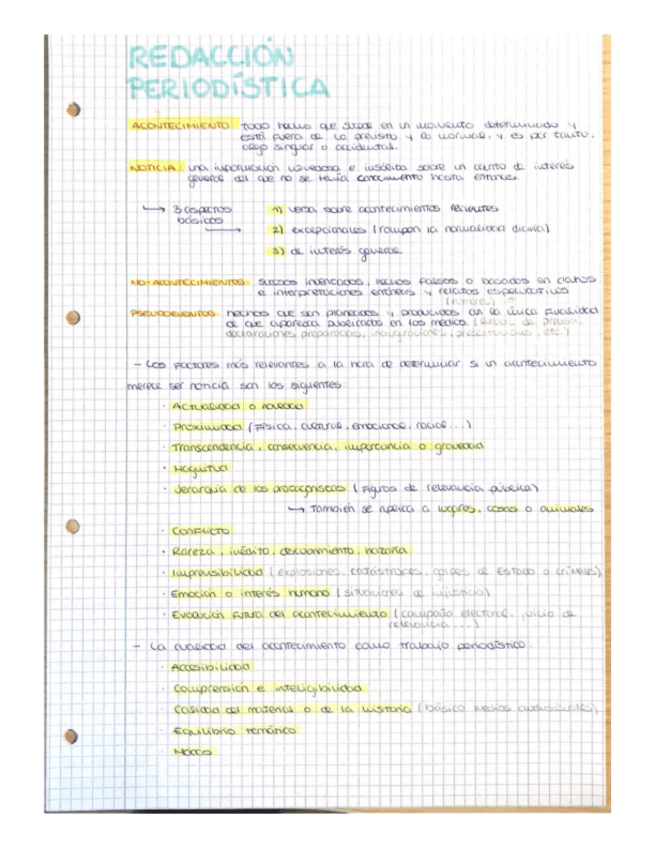 REDACCIÓN
PERIODÍSTICA
ACONTECIMIENTO: todo hecho que sucede en un momento determinado y
está fuera de lo previsto y lo normal, y es por tanto,
algo singular o accidental.
NOTICIA: una información novedosa e insólita sobre un asunto de interés
general del que no se tenía conocimiento hasta entonces.
→ 3 aspectos
básicos →
1) versa sobre acontecimientos recientes
2) excepcionales (rompen la normalidad diaria)
3) de interés general
NO-ACONTECIMIENTOS: sucesos inventados, hechos falsos o basados en datos
e interpretaciones erróneas y relatos especulativos
(rumores)
PSEUDOEVENTOS: hechos que son planeados y producidos con la única finalidad
de que aparezca publicados en los medios. (ruedas de prensa,
declaraciones preparadas, inauguraciones, presentaciones, etc.)
- Los factores más relevantes a la hora de determinar si un acontecimiento
merece ser noticia son los siguientes:
· Actualidad o novedad
· Proximidad (física, cultural, emocional, racial...)
· Transcendencia, consecuencia, importancia o gravedad
· Magnitud
· Jerarquía de los protagonistas (figuras de relevancia pública)
→ También se aplica a lugares, cosas o animales
· Conflicto
· Rareza, inédito, descubrimiento, hazaña
· Imprevisibilidad (explosiones, catástrofes, golpes de Estado o crímenes)
· Emoción o interés humano (situaciones de injusticia)
· Evolución futura del acontecimiento (campaña electoral, juicio de
relevancia...)
- La cualidad del acontecimiento como trabajo periodístico:
· Accesibilidad
· Comprensión e inteligibilidad
· Calidad del material o de la historia (básico medios audiovisuales)
· Equilibrio temático